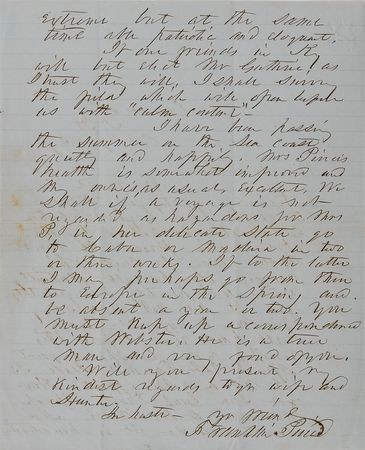 extreme but at the same
time able patriotic and eloquent.
If our friends in K
will but elect Mr Guthrie, as
I trust they will, I shall survey
the field which will open before
us with "calm content"–
I have been passing
the summer on the Sea coast
quietly and happily Mrs Pierce's
health is somewhat improved and
my own is, as usual, excellent. We
shall if a voyage is not
regarded as hazardous for Mrs
P. in her delicate state go
to Cuba or Madeira in two
or three weeks. If to the latter
I may perhaps go from there
to Europe in the Spring and
be absent a year or two. You
must keep up a correspondence
with Webster. He is a true
man and very fond of you.
Will you present my
kindest regards to yr wife and
Hunter.
In haste – yr friend
Franklin Pierce